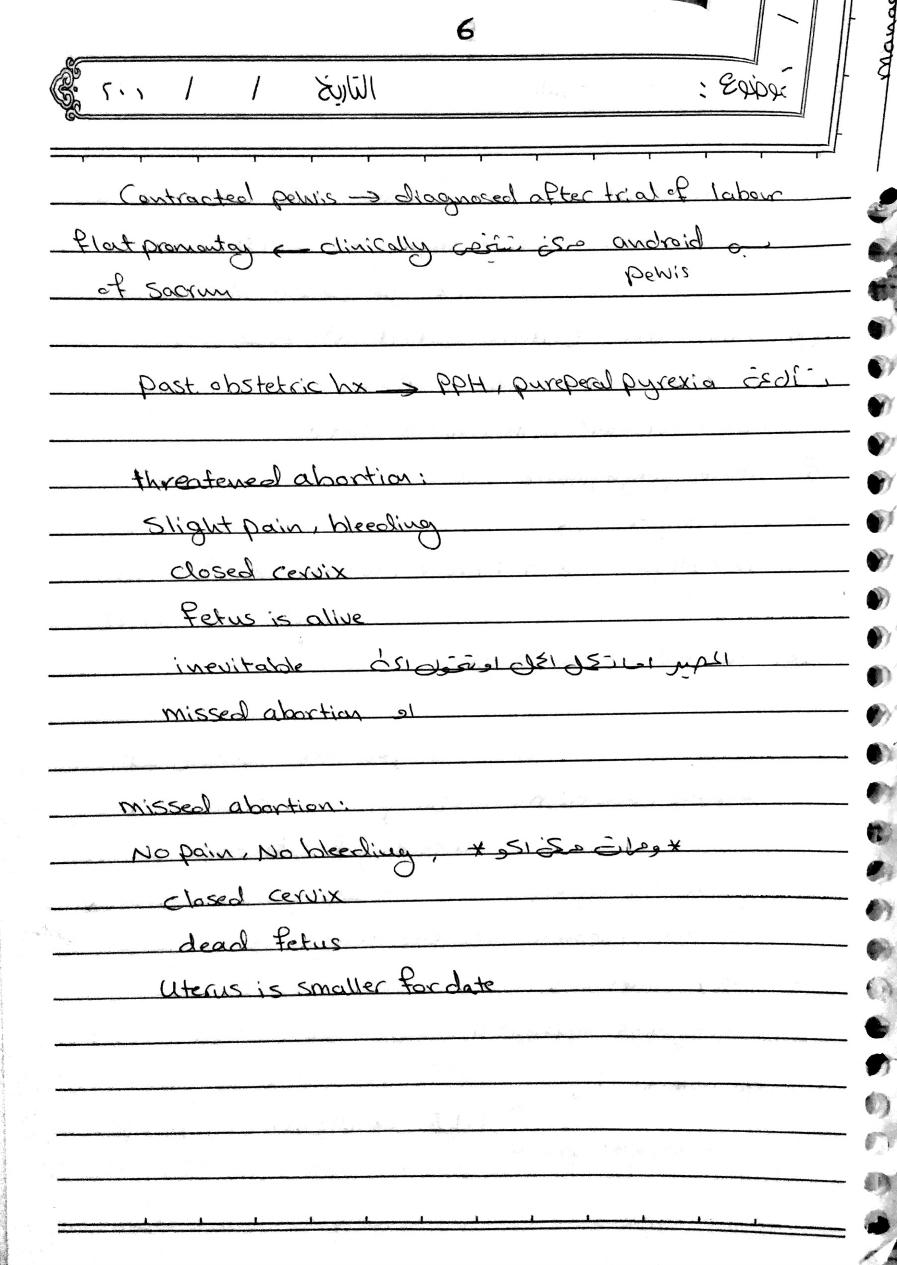 6
موضوع : التاريخ / / ٢٠٠١
Contracted pelvis → diagnosed after trial of labour
بس android pelvis ممكن تتشخص clinically ← flat promontoy
of sacrum
past obstetric hx → PPH, pureperal pyrexia
threatened abortion:
Slight pain, bleeding
closed cervix
fetus is alive
المصير اما تكمل الحمل او تتحول الى inevitable
او missed abortion
missed abortion:
No pain, No bleeding, *ومرات ممكن اكو*
closed cervix
dead fetus
Uterus is smaller for date